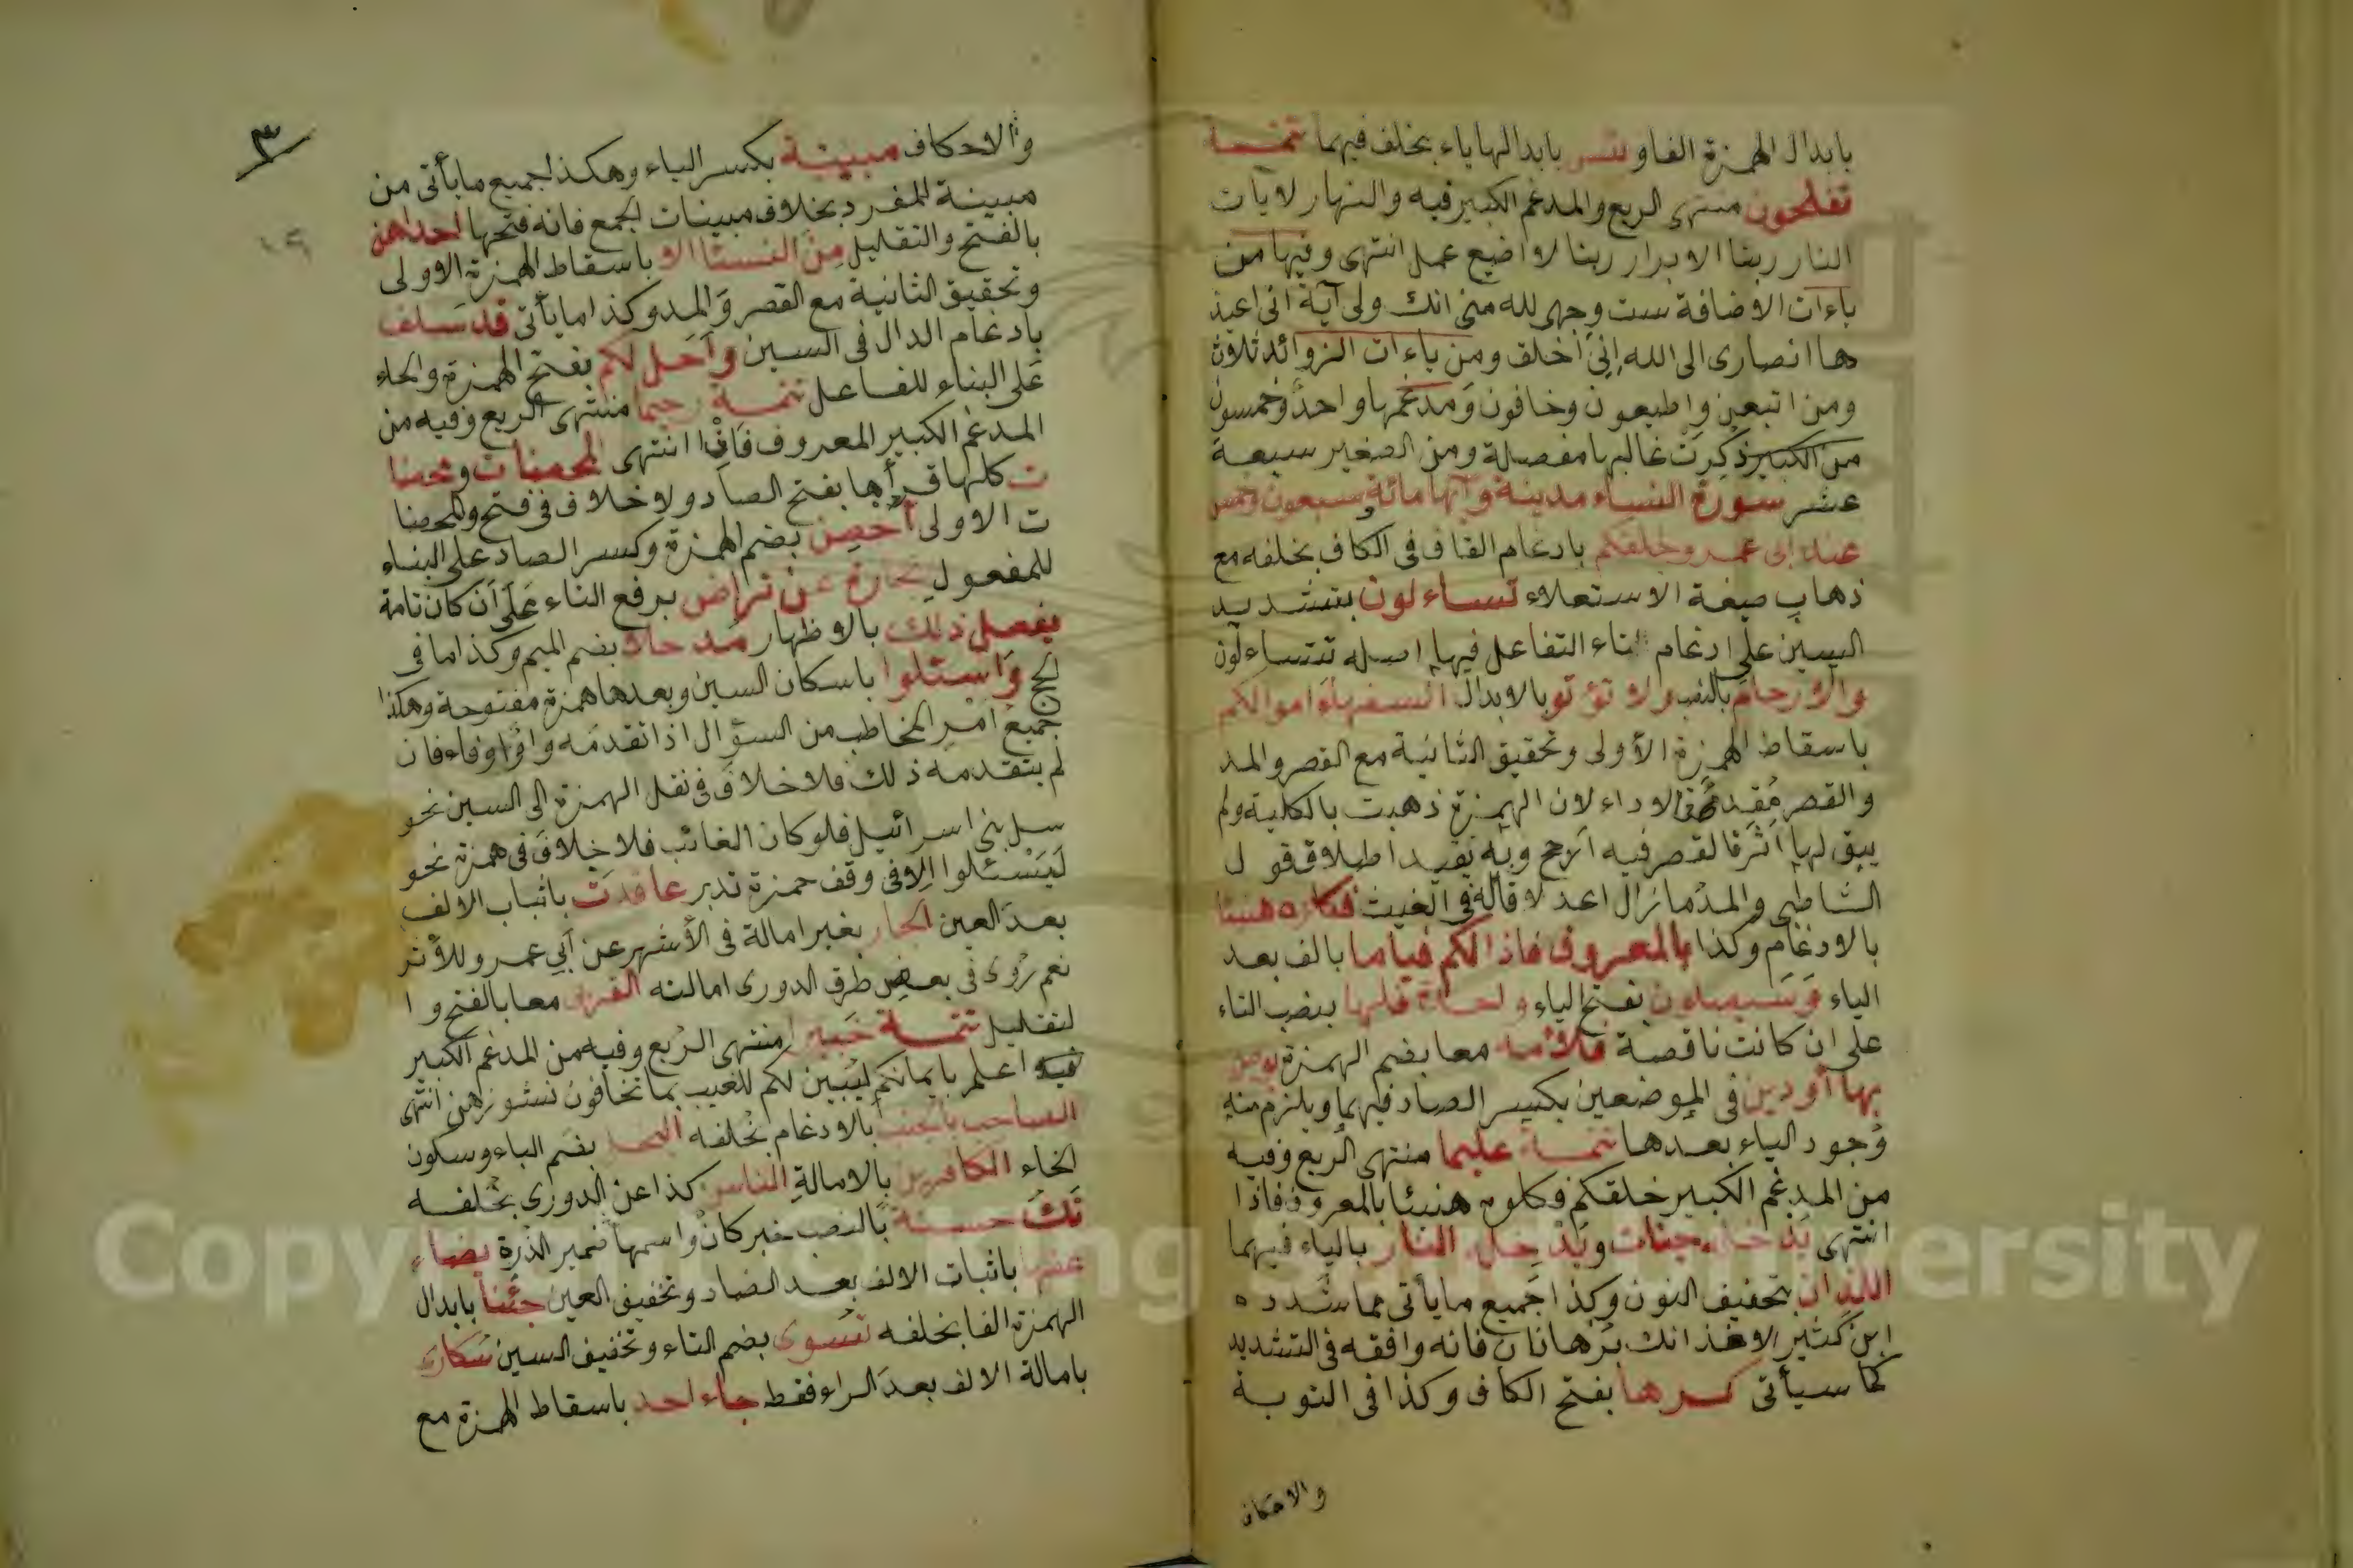 بابدال الهمزة الفا وبئس بابدالها ياء بخلف فيهما تتمة
تفلحون منتهى الربع والمدغم الكبير فيه والنهار لايات
النار ربنا الابرار ربنا لا اضيع عمل انتهى وفيها من
ياءات الاضافة ست وجهى لله منى انك ولى آية انى اعيذ
ها انصارى الى الله إنى أخلق ومن ياءات الزوائد ثلاث
ومن اتبعن واطيعون وخافون ومدغمها واحد وخمسون
من الكبير ذكرت غالبها مفصلة ومن الصغير سبعة
عشر سورة النساء مدينة وآيها مائة وسبعون وخمس
عند ابى عمرو خلقكم بادغام القاف فى الكاف بخلفه مع
ذهاب صفة الاستعلاء تساءلون بتشديد
السين على ادغام التاء التفاعل فيها اصله تتساءلون
والارحام بالنصب ولا تؤتو بالابدال السفهاء اموالكم
باسقاط الهمزة الأولى وتحقيق الثانية مع القصر والمد
والقصر مقدم الاداء لان الهمزة ذهبت بالكلية ولم
يبق لها اثر فالقصر فيه ارجح وبه تقيد اطلاق قول
الشاطبى والمد ما زال اعدلا قاله فى الغيث فكلوه هنيئا
بالادغام وكذا بالمعروف فاذا لكم قياما بالف بعد
الياء وسيصلون بفتح الياء واحدة فلها بنصب التاء
على ان كانت ناقصة فلأمه معا بضم الهمزة يوصى
بها أو دين فى الموضعين بكسر الصاد فيهما ويلزم منه
وجود الياء بعدها تتمة عليما منتهى الربع وفيه
من المدغم الكبير خلقكم فكلوه هنيئا بالمعروف فاذا
انتهى يدخله جنات ويدخله النار بالياء فيهما
اللذان بتخفيف النون وكذا جميع ما يأتى مما شدده
ابن كثير الا فذانك برهانان فانه وافقه فى التشديد
كما سيأتى كرها بفتح الكاف وكذا فى التوبة
والاحكاف
٣
١٩
والاحكاف مبينة بكسر الياء وهكذا جميع ما يأتى من
مبينة المفرد بخلاف مبينات الجمع فانه فتحها احداهن
بالفتح والتقليل من النسئا الا باسقاط الهمزة الاولى
وتحقيق الثانية مع القصر والمد وكذا ما يأتى قد سلف
بادغام الدال فى السين وأحل لكم بفتح الهمزة والحاء
على البناء للفاعل تتمة رحيما منتهى الربع وفيه من
المدغم الكبير المعروف فان انتهى المحصنات ومحصنا
ت كلها قرأها بفتح الصاد ولا خلاف فى فتح والمحصنا
ت الاولى أحصن بضم الهمزة وكسر الصاد على البناء
للمفعول تجارة عن تراض برفع التاء على أن كان تامة
يفعل ذلك بالاظهار مدخلا بضم الميم وكذا ما فى
الحج واسئلوا باسكان السين وبعدها همزة مفتوحة وهكذا
جميع امر المخاطب من السؤال اذا تقدمه واو او فاء فان
لم يتقدمه ذلك فلا خلاف فى نقل الهمزة الى السين نحو
سل بنى اسرائيل فلو كان الغائب فلا خلاف فى همزة نحو
ليسئلوا الا فى وقف حمزة تدبر عاقدت باثبات الالف
بعد العين الجار بغير امالة فى الأشهر عن أبى عمرو وللأثر
نعم روى فى بعض طرق الدورى امالته القربى معا بالفتح وا
لتقليل تتمة خبيرا منتهى الربع وفيه من المدغم الكبير
اعلم بايمانكم ليبين لكم للغيب بما تخافون نشوزهن انتهى
الصاحب بالجنب بالادغام بخلفه البخل بضم الباء وسكون
الخاء الكافرين بالامالة الناس كذا عن الدورى بخلفه
تك حسنة بالنصب خبر كان واسمها ضمير الذرة يضاء
عفها باثبات الالف بعد الضاد وتخفيف العين جئنا بابدال
الهمزة الفا بخلفه تسوى بضم التاء وتخفيف السين سكارى
بامالة الالف بعد الراء فقط جاء احد باسقاط الهمزة مع